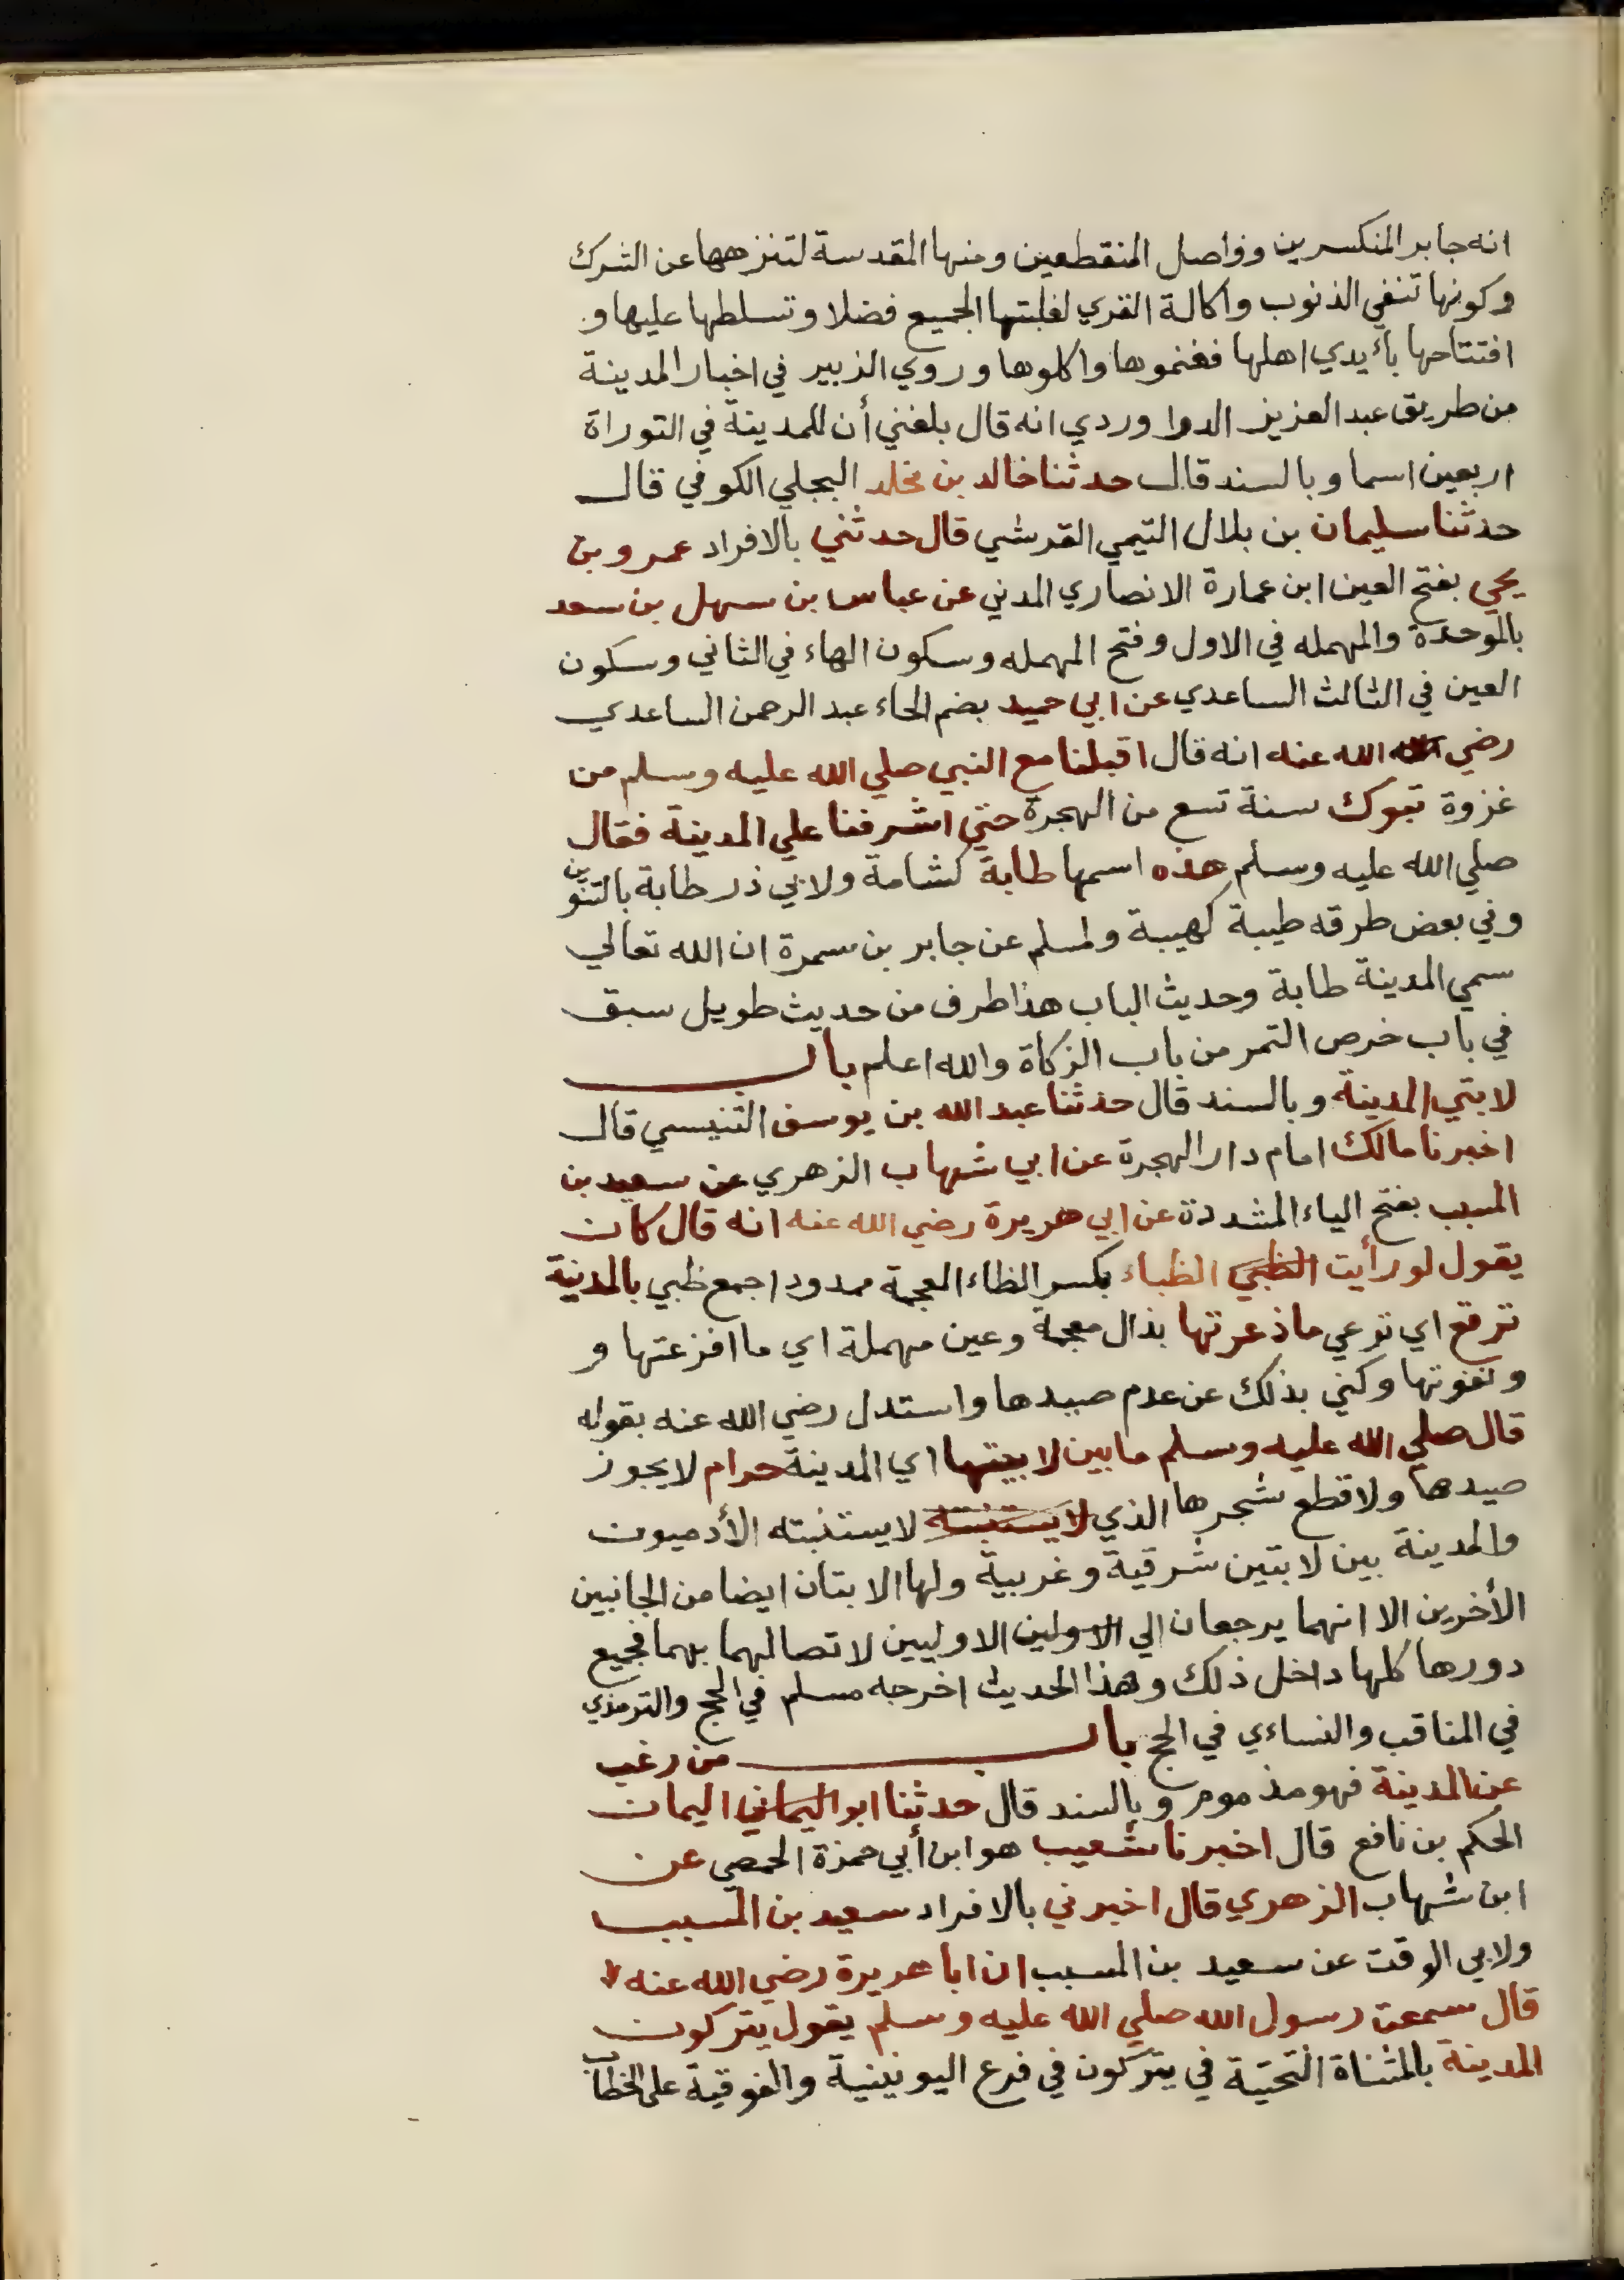 انه جابر المنكسرين وواصل المنقطعين ومنها المقدسة لتنزهها عن الشرك
وكونها تنفي الذنوب واكالة القري لغلبتها الجميع فضلا وتسلطها عليها و
افتتاحها بأيدي اهلها فغنموها واكلوها وروي الزبير في اخبار المدينة
من طريق عبد العزيز الدراوردي انه قال بلغني أن للمدينة في التوراة
اربعين اسما وبالسند قال حدثنا خالد بن مخلد البجلي الكوفي قال
حدثنا سليمان بن بلال التيمي القرشي قال حدثني بالافراد عمرو بن
يحي بفتح العين ابن عمارة الانصاري المدني عن عباس بن سهل بن سعد
بالموحدة والمهمله في الاول وفتح المهمله وسكون الهاء في الثاني وسكون
العين في الثالث الساعدي عن ابي حميد بضم الحاء عبد الرحمن الساعدي
رضي الله عنه انه قال اقبلنا مع النبي صلي الله عليه وسلم من
غزوة تبوك سنة تسع من الهجرة حتي اشرفنا علي المدينة فقال
صلي الله عليه وسلم هذه اسمها طابة كشامة ولابي ذر طابة بالتنوين
وفي بعض طرقه طيبة كهيبة ولمسلم عن جابر بن سمرة ان الله تعالي
سمي المدينة طابة وحديث الباب هذا طرف من حديث طويل سبق
في باب خرص التمر من باب الزكاة والله اعلم باب
لابتي المدينة وبالسند قال حدثنا عبد الله بن يوسف التنيسي قال
اخبرنا مالك امام دار الهجرة عن ابي شهاب الزهري عن سعيد بن
المسيب بفتح الياء المشددة عن ابي هريرة رضي الله عنه انه قال كان
يقول لو رأيت الظبي الظباء بكسر الظاء المعجمة ممدودا جمع ظبي بالمدينة
ترقع اي ترعي ماذعرتها بذال معجمة وعين مهملة اي ما افزعتها و
ونفرتها وكني بذلك عن عدم صيدها واستدل رضي الله عنه بقوله
قال صلي الله عليه وسلم مابين لابيتها اي المدينة حرام لايجوز
صيدها ولا قطع شجرها الذي لايستنبته لايستنبته الأدميون
والمدينة بين لابتين شرقية وغربية ولها الابتان ايضا من الجانبين
الأخرين الا انهما يرجعان الي الاولين الاوليين لاتصالهما بهما فجميع
دورها كلها داخل ذلك وهذا الحديث اخرجه مسلم في الحج والترمذي
في المناقب والنساءي في الحج باب من رغب
عن المدينة فهو مذموم وبالسند قال حدثنا ابو اليماني اليمان
الحكم بن نافع قال اخبرنا شعيب هو ابن أبي حمزة الحمصي عن
ابن شهاب الزهري قال اخبرني بالافراد سعيد بن المسيب
ولابي الوقت عن سعيد بن المسيب ان ابا هريرة رضي الله عنه
قال سمعت رسول الله صلي الله عليه وسلم يقول يتركون
المدينة بالمثناة التحتية في يتركون في فرع اليونينية والفوقية على الخطاب